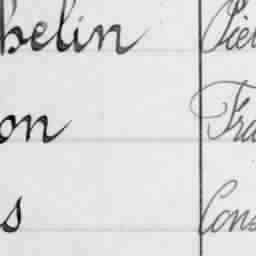 helin Pie
on Fra
s Cons